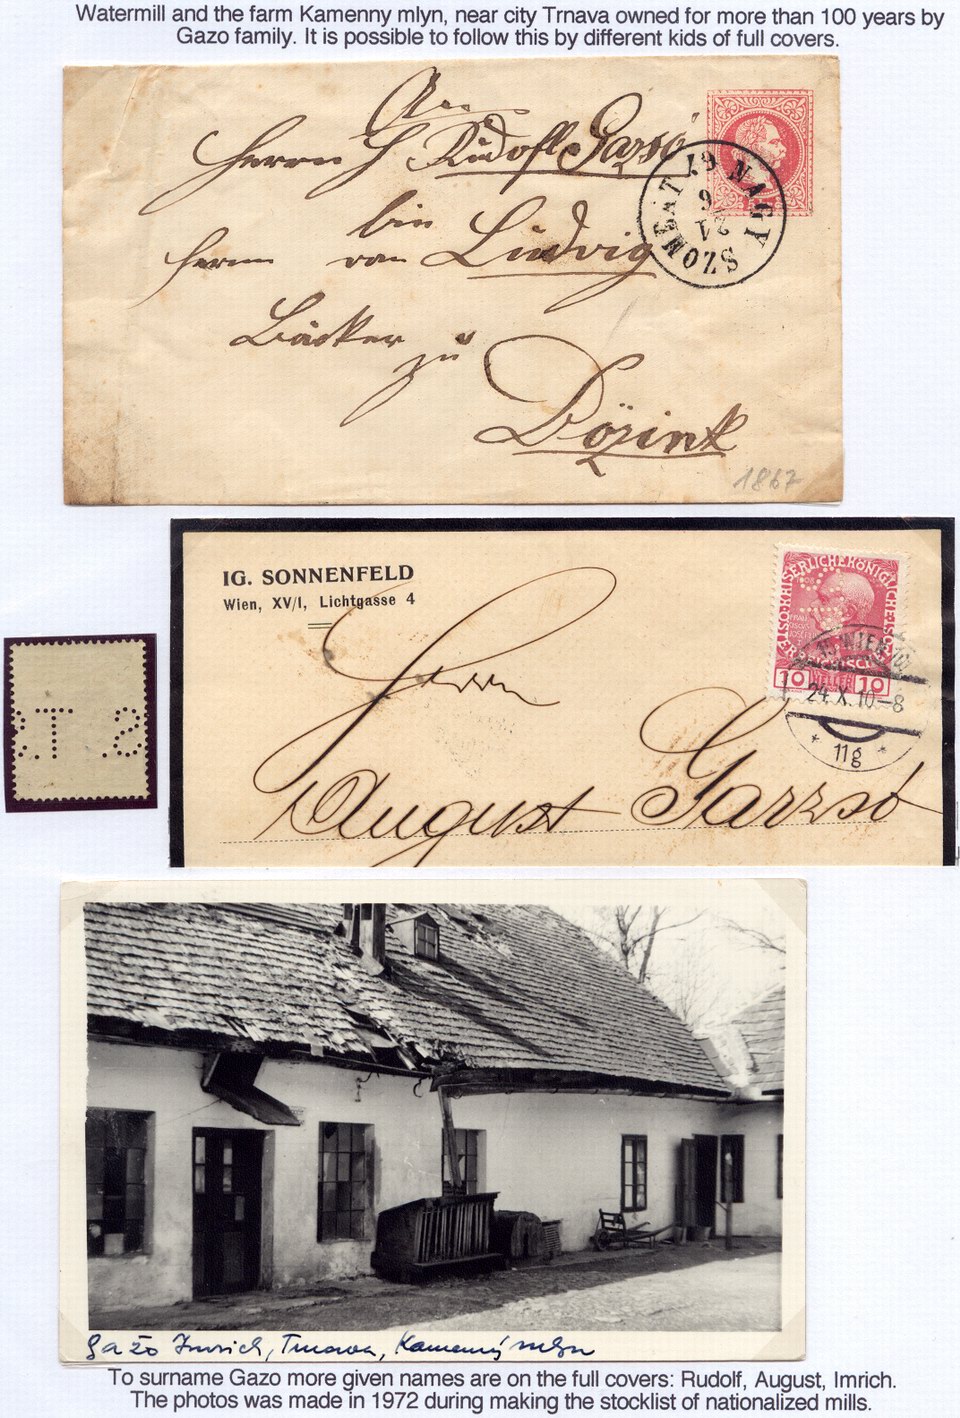 Watermill and the farm Kamenny mlyn, near city Trnava owned for more than 100 years by
Gazo family. It is possible to follow this by different kids of full covers.
An
Herrn H Rudolf Garsó
bin
Herrn von Ludwig
Bäcker zu
Bözink
NAGY SZOMBAT
21 6
67
1867
IG. SONNENFELD
Wien, XV/I, Lichtgasse 4
KAISERLICHE KÖNIGLICHE ÖSTERREICHISCHE
10 HELLER 10
WIEN
24.X.10-8
* 11g *
Herrn
August Garzsó
T S
Gažo Imrich, Trnava, Kamenný mlyn
To surname Gazo more given names are on the full covers: Rudolf, August, Imrich.
The photos was made in 1972 during making the stocklist of nationalized mills.